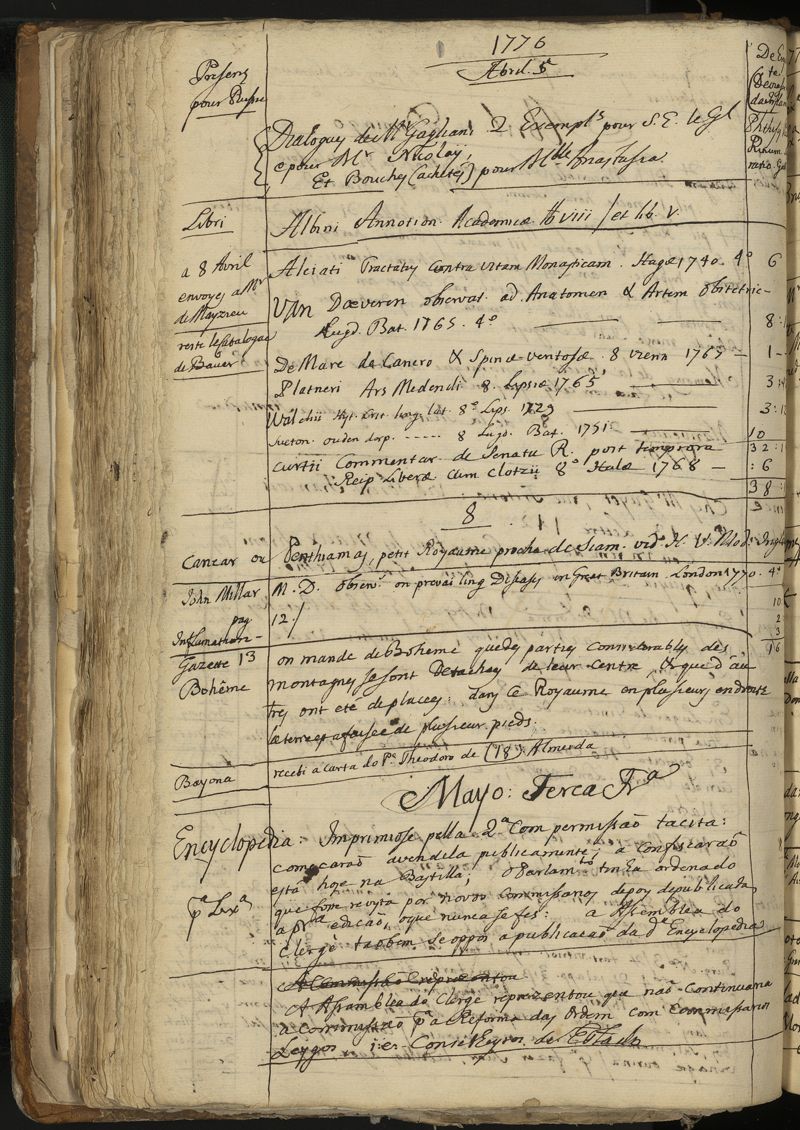 1776
Abril. 5
Presens
pour Russie
Dialogues de Mr Gagliani 2 Exempl.s pour S. E. le Gl
e pour Mr Nicolay,
Et Bouchez (achetez) pour Mlle Anastasia.
Libri
Albini Annotion. Academicæ lib viii / et lib. V.
a 8 Avril
envoyez a Mr
de Mayzieu
reste le Catalogue
de Bauer
Alciati Tractatus contra vitam Monasticam. Hagæ 1740. 4° 6
Van Dœveren observat. ad Anatomen & Artem Obstetric-
Lugd. Bat. 1765. 4° 8:
De Mare de Cancro & Spinæ ventosæ 8 vienn 1767 — 1 -
Platneri Ars Medendi 8. Lipsiæ 1765 3:
Walchii Hist. Crit. ling. lat. 8° Lips. 1729 3:
Sueton. ouden dorp. ----- 8 Lugd. Bat. 1751 10
32:
Curtii Commentar. de Senatu R. post tempora
Reip Liberæ cum Clotzii 8° Halæ 1768 — : 6
38:
8
Cancar ou Ponthiamas, petit Royaume proche de Siam. vid.
John Millar M. D. observ. on prevailing Diseases in Great Britain London 1770. 4°
pag 12./
Inflammation-
10
2
3
16
Gazette 13
Bohême
on mande de Boheme que des parties considerables des
montagnes se sont Detachez de leur centre, & que d'au
tres ont eté deplacez: dans ce Royaume en plusieurs endroits
la terre s'est afaisée de plusieur pieds.
Bayona
recebi a carta do Pe Theodoro de (18) Almeida
Mayo: Terca Fra
Encyclopedia: Imprimiose pella 2a com permissaõ tacita:
começaraõ avendela publicamente; a confiscaraõ
está hoje na Bastilla; o Parlamto tinha ordenado
que fosse revista por novos Commissarios depoy de publicada
a pra edicaõ, o que nunca se fes: a Assemblea do
Clergé taõbem se oppos a publicacaõ da da Encyclopedia
pa Lxa
A Commissaõ representou
A Assamblea do Clergé reprezentou que naõ Continuaria
a commissaõ pa a Reforma das Ordem com Commissarios
Leygos i: e: Conselheyros de Estado